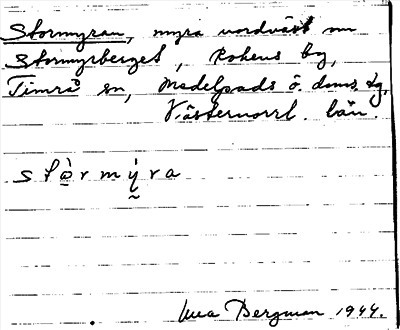 Stormyran, myra nordväst om
Stormyrberget, by,
Timrå sn, Medelpads ö. doms. tg,
Västernorrl. län.
stò̱rmý̰ra
Bergman 1944.